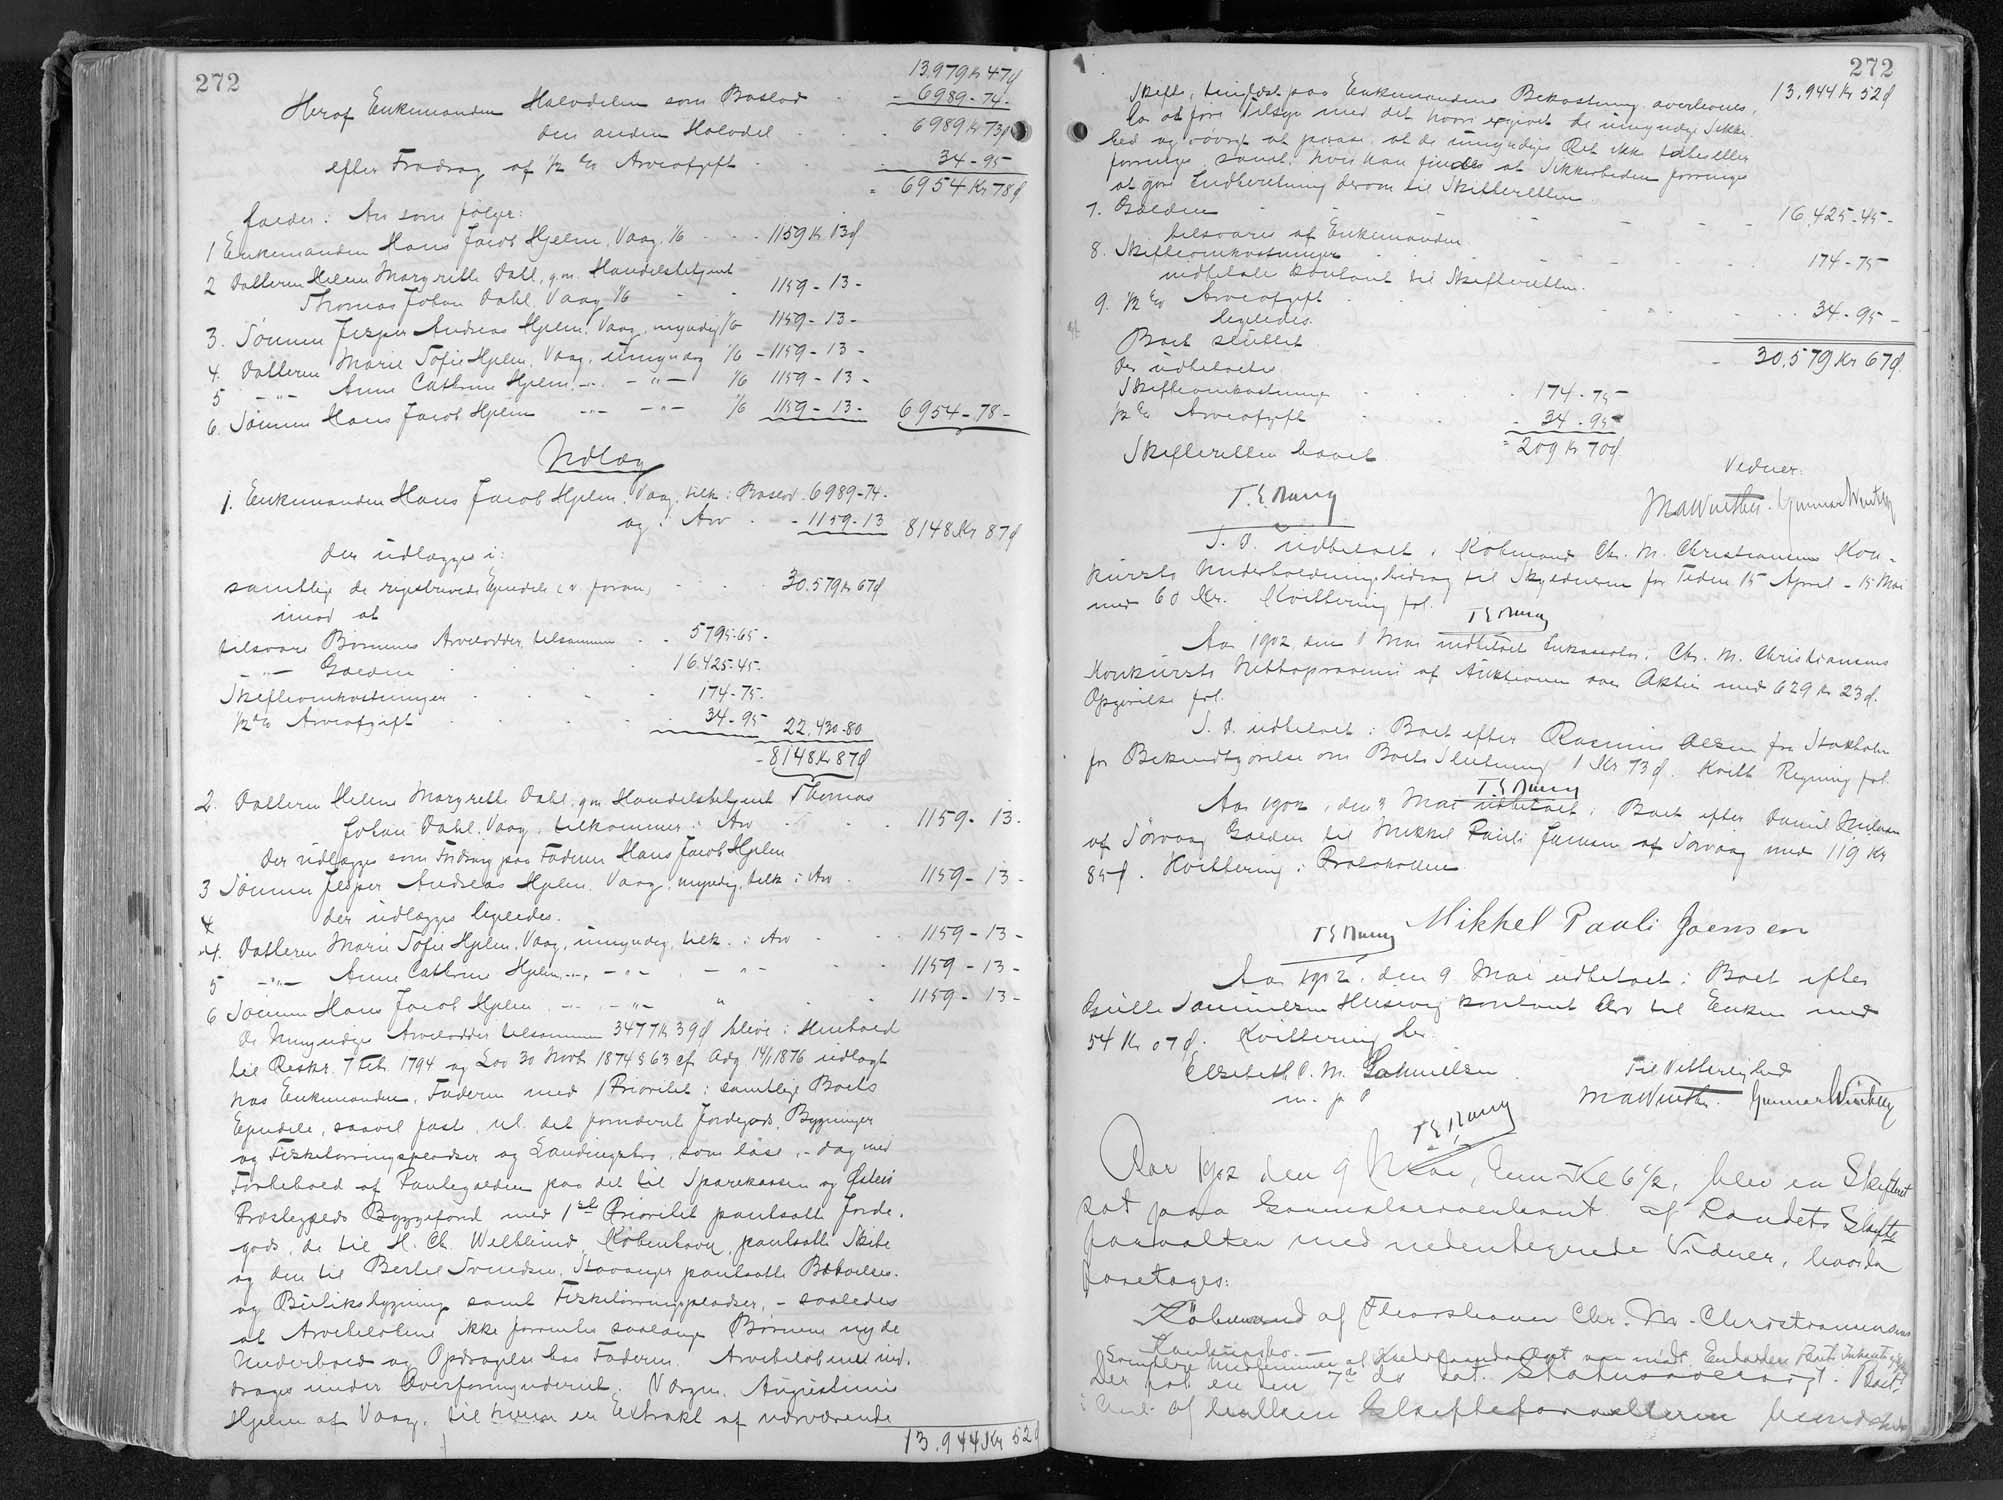 272
13.979 Kr 47 ø
Heraf Enkemanden Halvdelen som Boslod - 6989 - 74 -
den anden Halvdel 6989 Kr 73 ø
efter Fradrag af ½ % Arveafgift 34 - 95
= 6954 Kr 78 ø
falder i Arv som følger:
1 Enkemanden Hans Jacob Hjelm, Vaag, 1/6 1159 Kr 13 ø
2 Datteren Helene Margrethe Dahl, g. m. Handelsbetjent
Thomas Johan Dahl, Vaag 1/6 1159 - 13 -
3. Sønnen Jesper Andreas Hjelm, Vaag, myndig 1/6 1159 - 13 -
4. Datteren Marie Sofie Hjelm, Vaag, umyndig 1/6 - 1159 - 13 -
5 - " - Anne Cathrine Hjelm - " - - " - 1/6 1159 - 13 -
6. Sønnen Hans Jacob Hjelm - " - - " - 1/6 1159 - 13 - 6954 - 78 -
Udlæg
1. Enkemanden Hans Jacob Hjelm, Vaag, tilk: Boslod 6989 - 74 -
og i Arv - 1159 - 13 8148 Kr 87 ø
der udlægges i:
samtlige de registrerede Ejendele (v. foran) 30.579 Kr 67 ø
imod at
tilsvare Børnenes Arvelodder, tilsammen 5795 - 65 -
- " - Gælden 16.425 - 45 -
Skifteomkostninger 174 - 75 -
½ % Arveafgift 34 - 95 22.430 - 80
- 8148 Kr 87 ø
2. Datteren Helene Margrethe Dahl, g. m. Handelsbetjent Thomas
Johan Dahl, Vaag, tilkommer i Arv 1159 - 13 -
der udlægges som Fordring paa Faderen Hans Jacob Hjelm
3 Sønnen Jesper Andreas Hjelm, Vaag, myndig, tilk: i Arv 1159 - 13 -
der udlægges ligeledes.
4. Datteren Marie Sofie Hjelm, Vaag, umyndig, tilk. i Arv 1159 - 13 -
5 - " - Anne Cathrine Hjelm - " - - " - - " - 1159 - 13 -
6 Sønnen Hans Jacob Hjelm - " - - " - " 1159 - 13 -
De Umyndiges Arvelodder tilsammen 3477 Kr 39 ø blive i Henhold
til Reskr. 7 Feb. 1794 og Lov 30 Novb 1874 § 63 cf. Adg 14/1 1876 udlagt
hos Enkemanden, Faderen med 1 Prioritet i samtlige Boets
Ejendele, saavel faste, nl. det Jordegods, Bygninger
og Fisketørringspladser og Landingsbro, som løse, - dog med
Forbehold af Pantegælden paa det til Sparekassen og Østerø
Præstegjelds Byggefond med 1ste Prioritet pantsatte Jorde-
gods, de til H. Ch. København, pantsatte Skibe
og den til Bertel Svendsen, Stavanger pantsatte
og Butiksbygning samt Fisketørringspladser, - saaledes
at Arvebeløbene ikke forrentes saalænge Børnene nyde
Underhold og Opdragelse hos Faderen. Arvebeløbene ind-
drages under Overformynderiet. Værgen, Augustinus
Hjelm af Vaag, til hvem en Extrakt af nærværende
13.944 Kr 52 ø
272
13.944 Kr 52 ø
Skifte, tinglæst paa Enkemandens Bekostning overleveres,
har at føre Tilsyn med det hvori er givet de umyndige Sikker-
hed og iøvrigt at paase at de umyndiges Ret ikke tabes eller
forringes, samt, hvis han finder at Sikkerheden forringes
at gøre Indberetning derom til Skifteretten
7. Gælden 16.425 - 45 -
tilsvares af Enkemanden.
8. Skifteomkostninger 174 - 75
indbetales kontant til Skifteretten.
9. ½ % Arveafgift 34 - 95 -
ligeledes.
- 30.579 Kr 67 ø
Boet sluttet.
Der indbetaltes:
Skifteomkostninger - 174 - 75 -
½ % Arveafgift - 34 - 95 -
= 209 Kr 70 ø
Skifteretten hævet.
Vidner:
S. D. udbetalt i Købmand Chr. M. Christiansens Kon-
kursbo Underholdningsbidrag til Skyldneren for Tiden 15 April - 15 Mai
med 60 Kr. Kvittering fol.
Aar 1902, den Mai indbetalt i Chr. M. Christiansens
Konkursbo Nettoprovenu af Auktionen over Aktier med 629 Kr 23 ø.
Opgørelse fol.
S. D. udbetalt i Boet efter Rasmus Olsen fra
for Bekendtgørelse om Boets Slutning 1 Kr 73 ø. Kvitt Regning fol.
Aar 1902, den 3 Mai udbetalt i Boet efter Daniel
af Sørvaag Gælden til Mikkel Pauli Joensen af Sørvaag med 119 Kr
85 ø. Kvittering i Protokollen
Mikkel Pauli Joensen
Aar 1902, den 9 Mai udbetalt i Boet efter
Samuelsen Husevig kontant Arv til Enken med
54 Kr 07 ø. Kvittering her.
Elsebeth Samuelsen
m. p. P
Til Vitterlighed
Aar 1902 den 9 Mai, Em. Kl 6½, blev en Skifteret
sat paa af Landets Skifte
forvalter med nedentegnede Vidner, hvorda
foretoges:
Købmand af Thorshavn Chr. M. Christiansens
Konkursbo. -
Samtlige Medlemmer af Kreditorudvalget var mødt.
Der fol. en den 7de ds dat. Statusoversigt.
af hvilken Skifteforvalteren